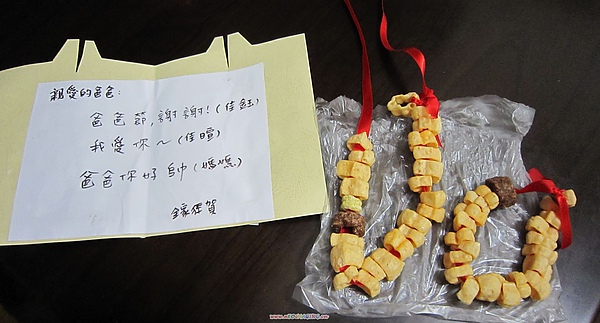 親愛的爸爸:
爸爸節,謝謝!(佳鈺)
我愛你~(佳暄)
爸爸你好帥(媽媽)